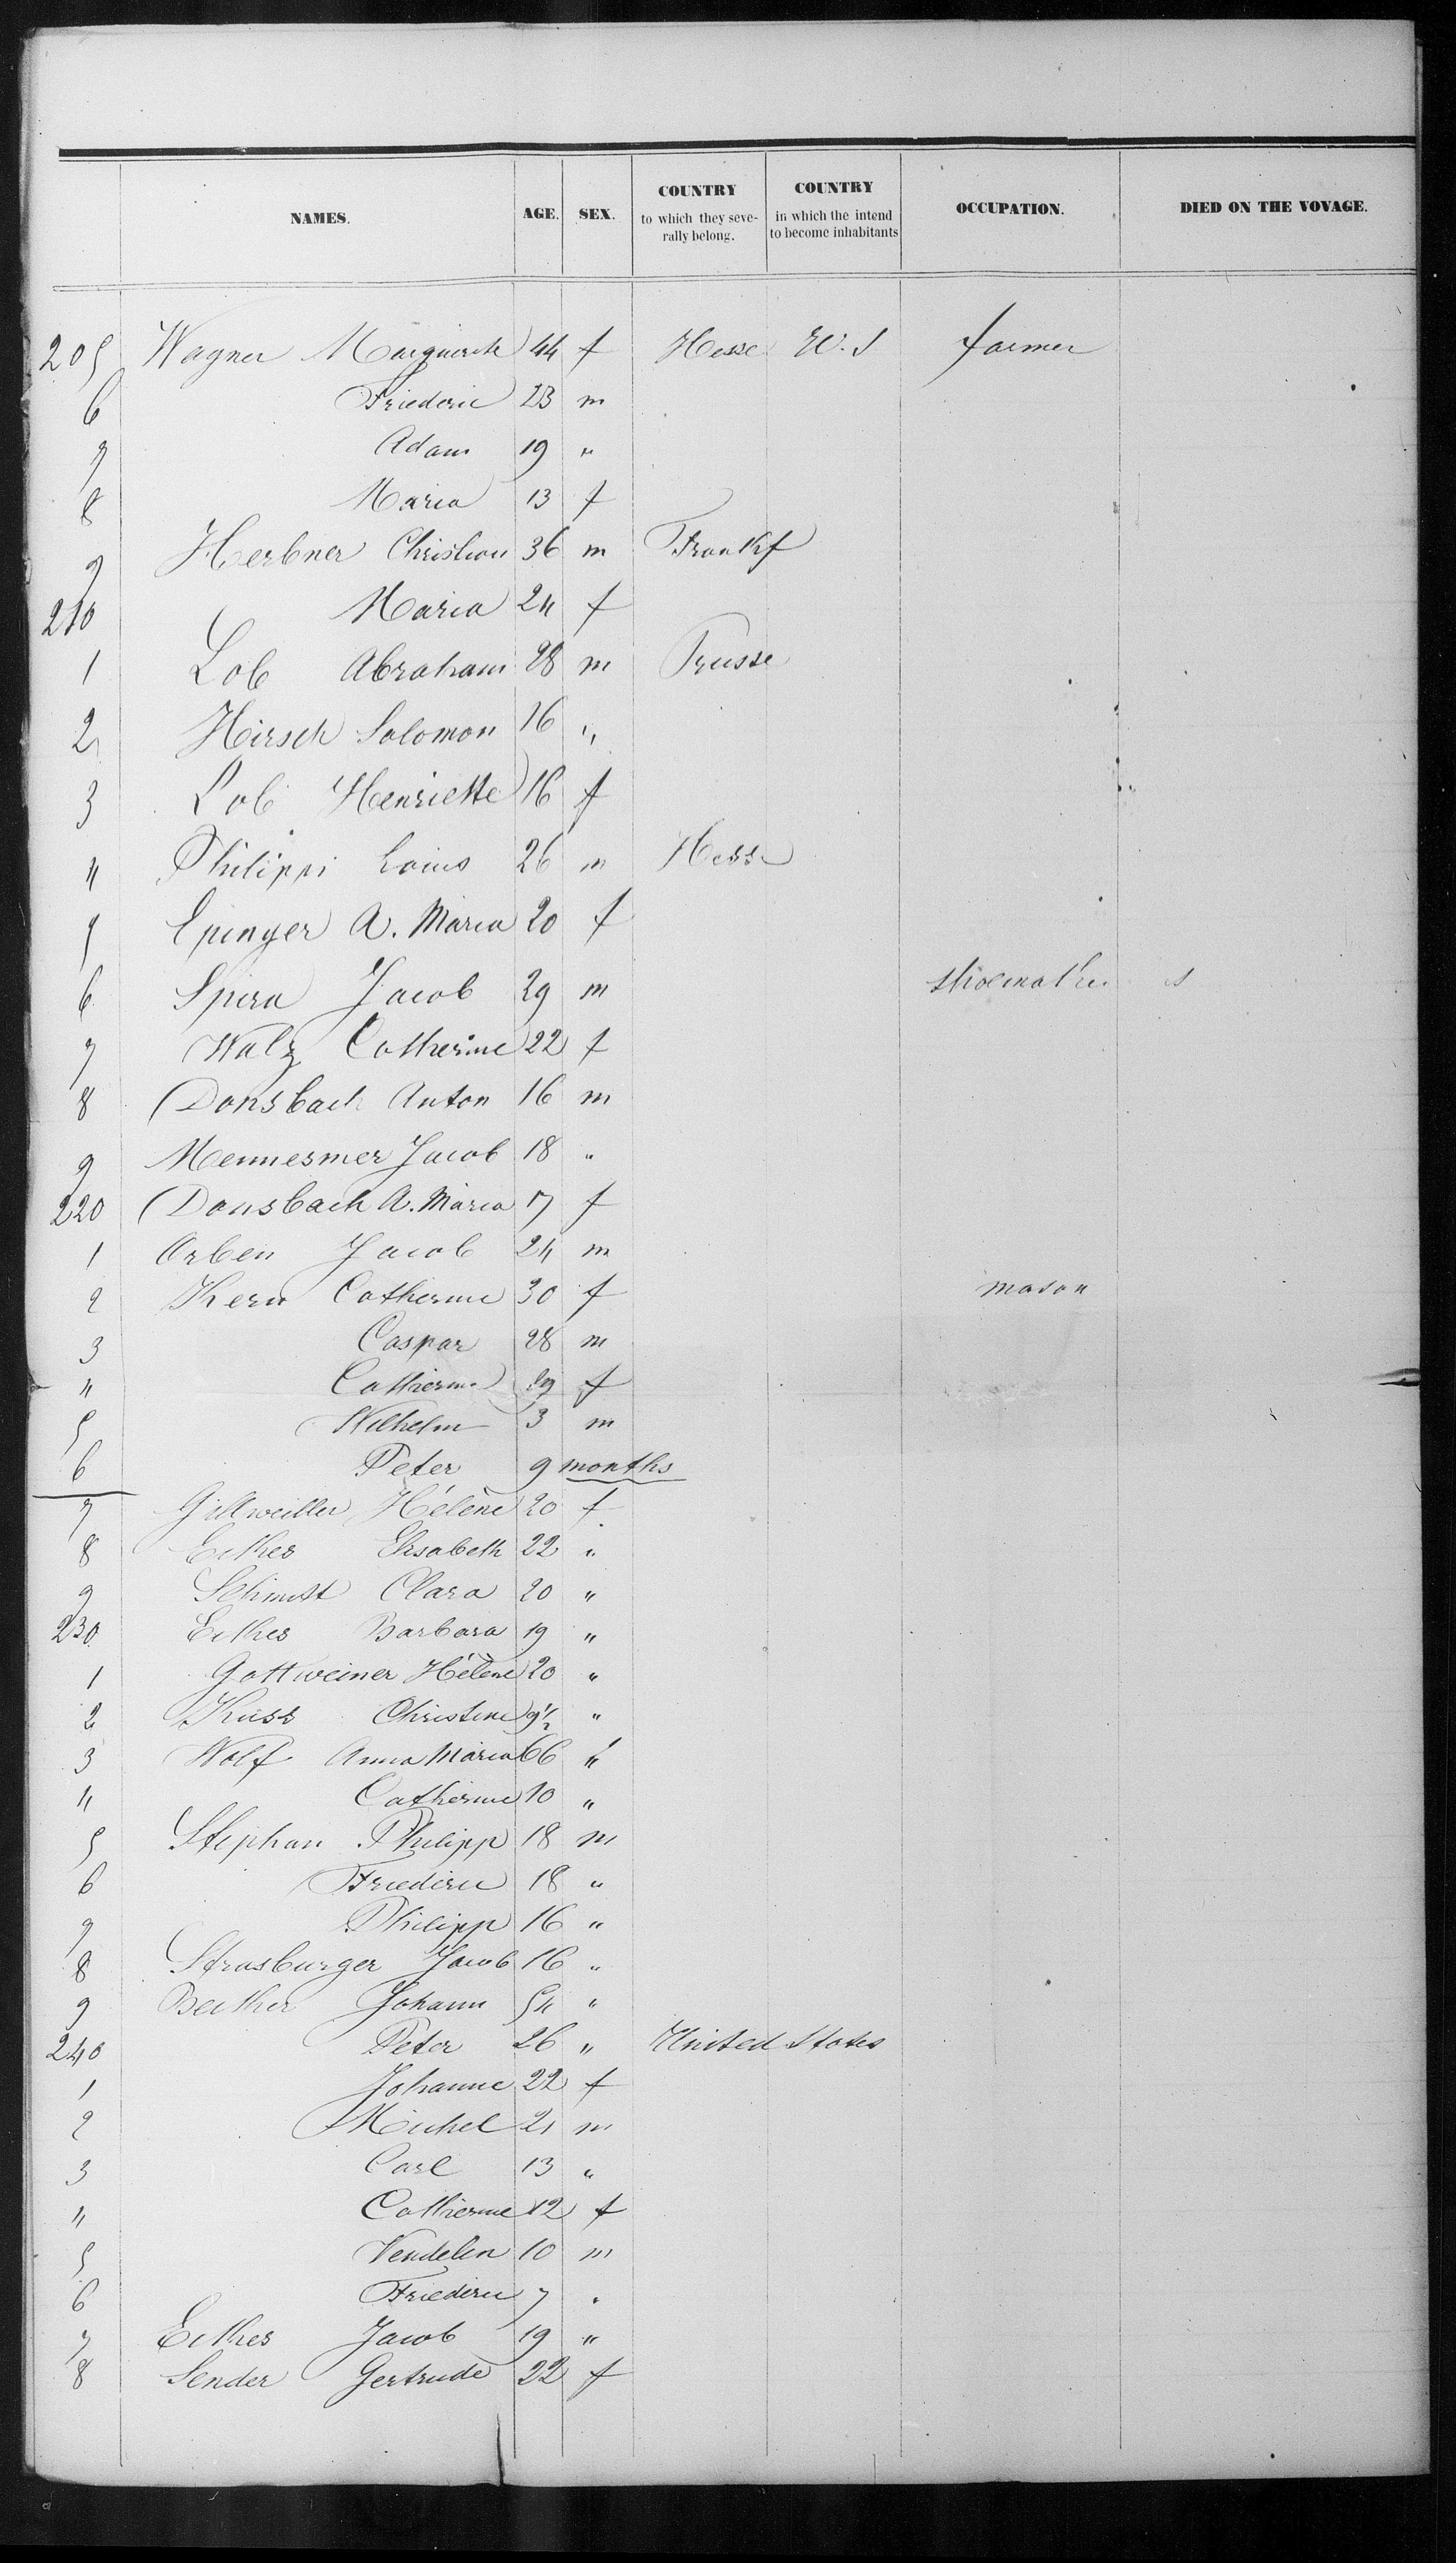 NAMES. AGE. SEX. COUNTRY to which they severally belong. COUNTRY in which the intend to become inhabitants OCCUPATION. DIED ON THE VOVAGE.
205 Wagner Marguerite 44 f Hesse U.S farmer
6 Friederic 23 m
7 Adam 19 "
8 Maria 13 f
9 Herbner Christian 36 m Frankf
210 Maria 24 f
1 Lob Abraham 28 m Prusse
2 Hirsch Solomon 16 "
3 Lob Henriette 16 f
4 Philippi Louis 26 m Hesse
5 Epinger A. Maria 20 f
6 Spira Jacob 29 m shoemaker s
7 Walz Catherine 22 f
8 Donsbach Anton 16 m
9 Mennesmer Jacob 18 "
220 Donsbach A. Maria 17 f
1 Orben Jacob 24 m
2 Kern Catherine 30 f mason
3 Caspar 28 m
4 Catherine f
5 Wilhelm 3 m
6 Peter 9 months
7 Gillweiller Hélène 20 f
8 Eckes Elisabeth 22 "
9 Schmitt Clara 20 "
230 Eckes Barbara 19 "
1 Gottweiner Hélène 20 "
2 Kuss Christine 9½ "
3 Wolf Anna Maria 66 "
4 Catherine 10 "
5 Stephan Philipp 18 m
6 Friederic 18 "
7 Philipp 16 "
8 Strasburger Jacob 16 "
9 Becker Johann 54 "
240 Peter 26 " United States
1 Johanne 22 f
2 Michel 21 m
3 Carl 13 "
4 Catherine 12 f
5 Vendelin 10 m
6 Friederic 7 "
7 Eckes Jacob 19 "
8 Sender Gertrude 22 f